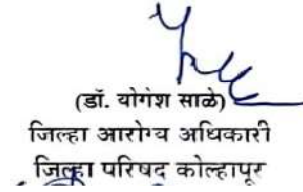 (डॉ. योगेश साळे)
जिल्हा आरोग्य अधिकारी
जिल्हा परिषद कोल्हापूर